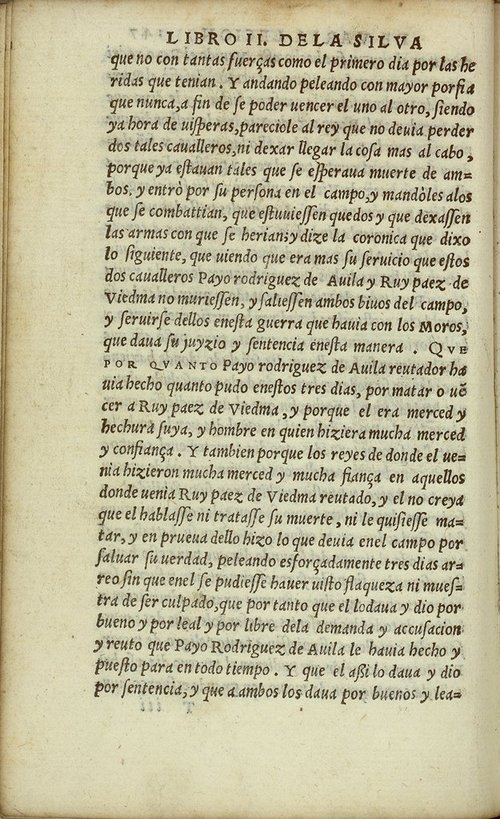 LIBRO II. DE LA SILVA
que no con tantas fuerças como el primero dia por las he
ridas que tenian. Y andando peleando con mayor porfia
que nunca,a fin de se poder uencer el uno al otro, ſiendo
ya hora de uiſperas,pareciole al rey que no deuia perder
dos tales caualleros,ni dexar llegar la coſa mas al cabo,
porque ya eſtauan tales que se eſperaua muerte de am=
bos, y entrò por ſu perſona en el campo,y mandòles alos
que ſe combattian, que eſtuuieſſen quedos y que dexaſſen
las armas con que ſe herian;y dize la coronica que dixo
lo ſiguiente, que uiendo que era mas ſu ſeruicio que eſtos
dos caualleros Payo rodriguez de Auila y Ruy paez de
Viedma no murieſſen, y ſalieſſen ambos biuos del campo,
y ſeruirſe dellos eneſta guerra que hauia con los Moros,
que daua ſu juyzio y ſentencia eneſta manera . QVE
POR QVANTO Payo rodriguez de Auila reutador ha
uia hecho quanto pudo eneſtos tres dias, por matar o uẽ
cer a Ruy paez de Viedma , y porque el era merced y
hechura ſuya, y hombre en quien hiziera mucha merced
y confiança . Y tambien porque los reyes de donde el ue=
nia hizieron mucha merced y mucha fiança en aquellos
donde uenia Ruy paez de Viedma reutado, y el no creya
que el hablaſſe ni trataſſe ſu muerte , ni le quiſieſſe ma=
tar, y en prueua dello hizo lo que deuia enel campo por
ſaluar ſu uerdad, peleando esforçadamente tres dias ar=
reo ſin que enel ſe pudieſſe hauer uiſto flaqueza ni mueſ=
tra de ſer culpado,que por tanto que el lo daua y dio por
bueno y por leal y por libre dela demanda y accuſacion
y reuto que Payo Rodriguez de Auila le hauia hecho y
pueſto para en todo tiempo . Y que el aßi lo daua y dio
por ſentencia, y que a ambos los daua por buenos y lea=